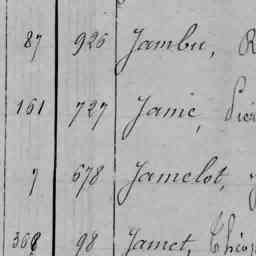 87 926 Jambu, R
161 727 Jamé,
7 678 Jamelot,
368 98 Jamet, Théop